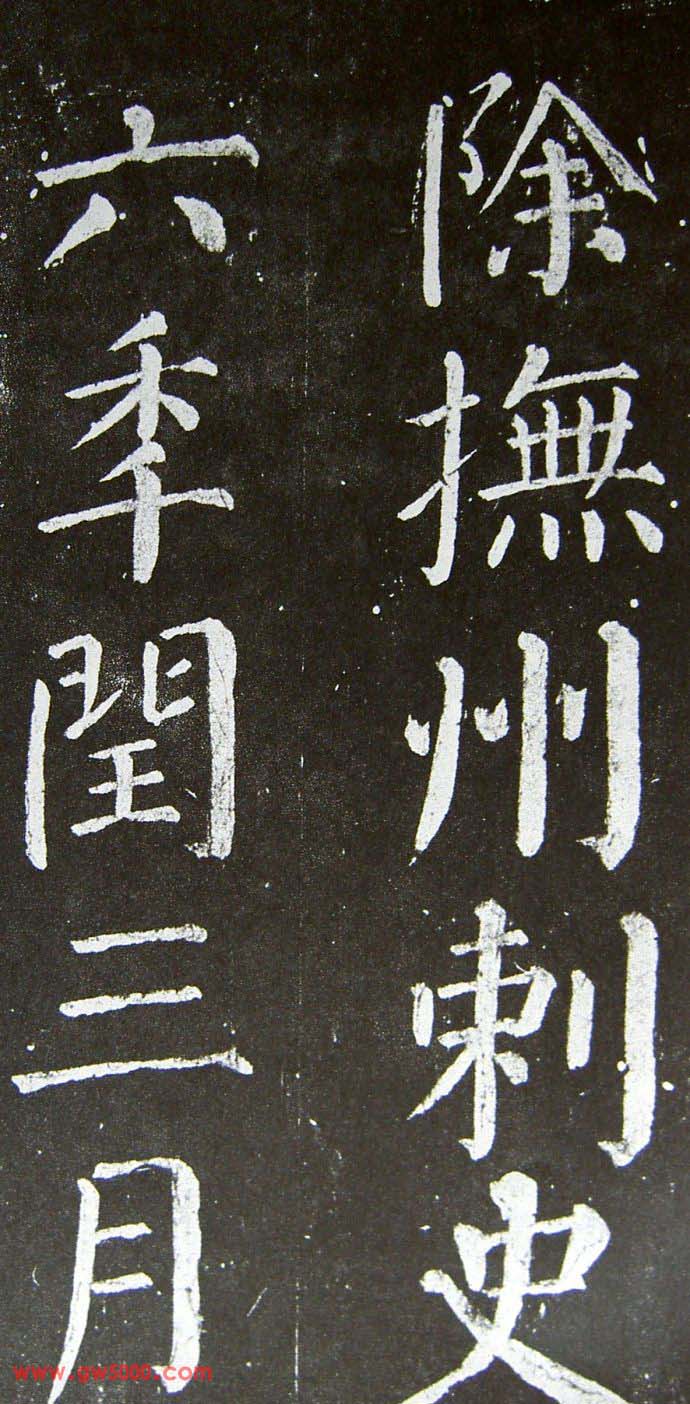 除撫州刺史
六秊閏三月
www.gw5000.com